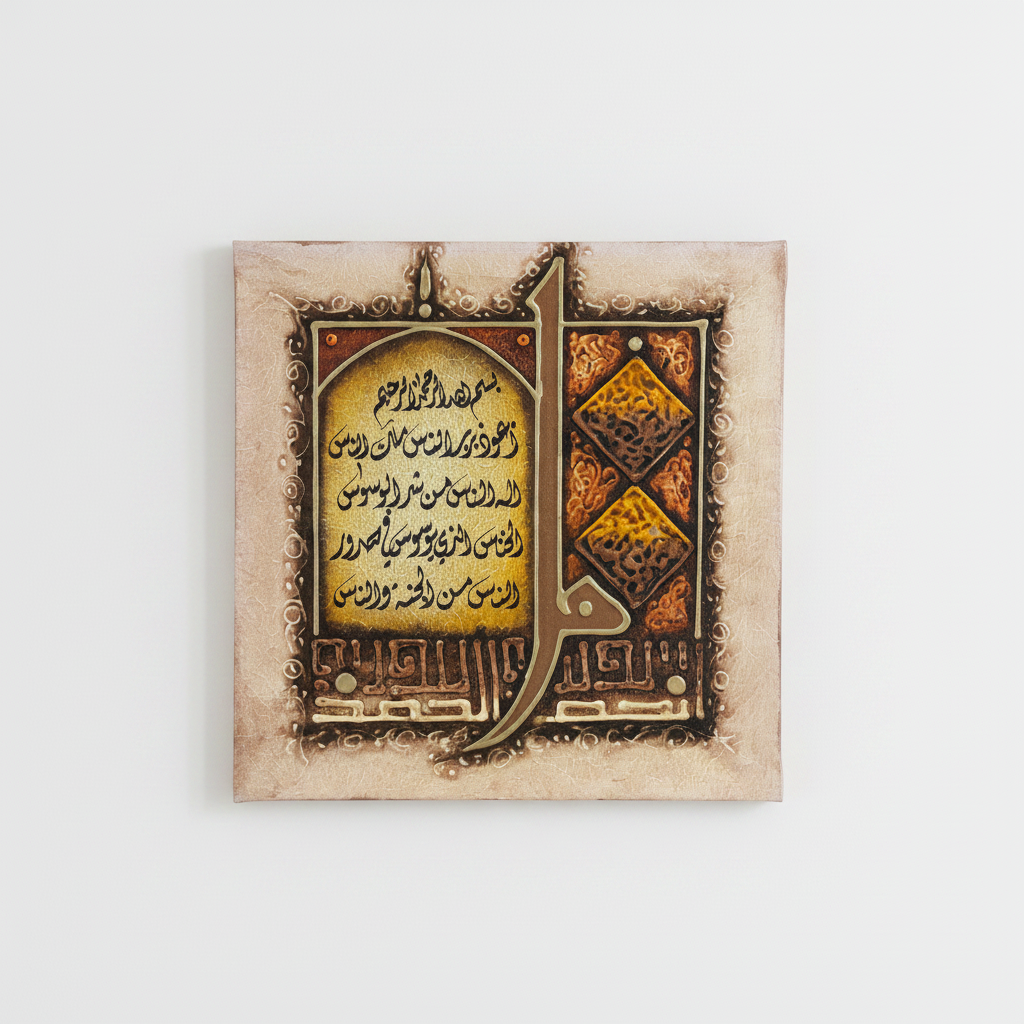 بسم الله الرحمن الرحيم
أعوذ برب الناس ملك الناس
اله الناس من شر الوسوس
الخناس الذي يوسوس في صدور
الناس من الجنة والناس
الحمد